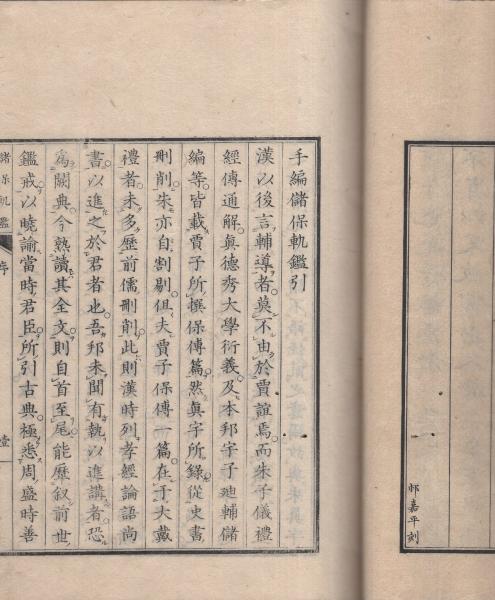 邨嘉平刻
手編儲保軌鑑引
漢以後言輔導者莫不由於賈誼焉而朱子儀禮
經傳通解眞德秀大學衍義及本邦宇子廸輔儲
編等皆載賈子所撰保傅篇然眞宇所錄從史書
刪削朱亦自割剔但夫賈子保傅一篇在于大戴
禮者未多歷前儒刪削此則漢時列孝經論語尚
書以進之於君者也吾邦未聞有執以進講者恐
爲闕典今熟讀其全文則自首至尾能歷叙前世
鑑戒以曉諭當時君臣所引古典極悉周盛時善
儲保軌鑑 序 壹